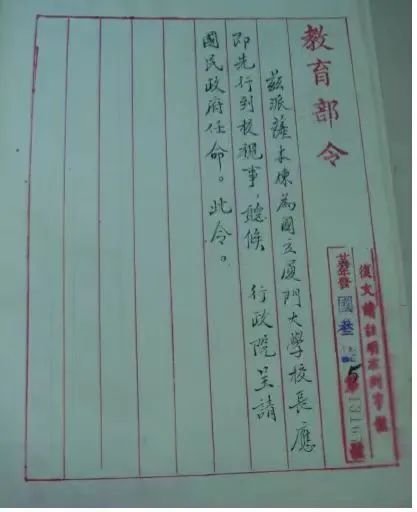 復文請註明
字號
發國叁
5
教育部令
茲派薩本棟為國立廈門大學校長應
即先行到校視事，聽候 行政院呈請
國民政府任命。此令。